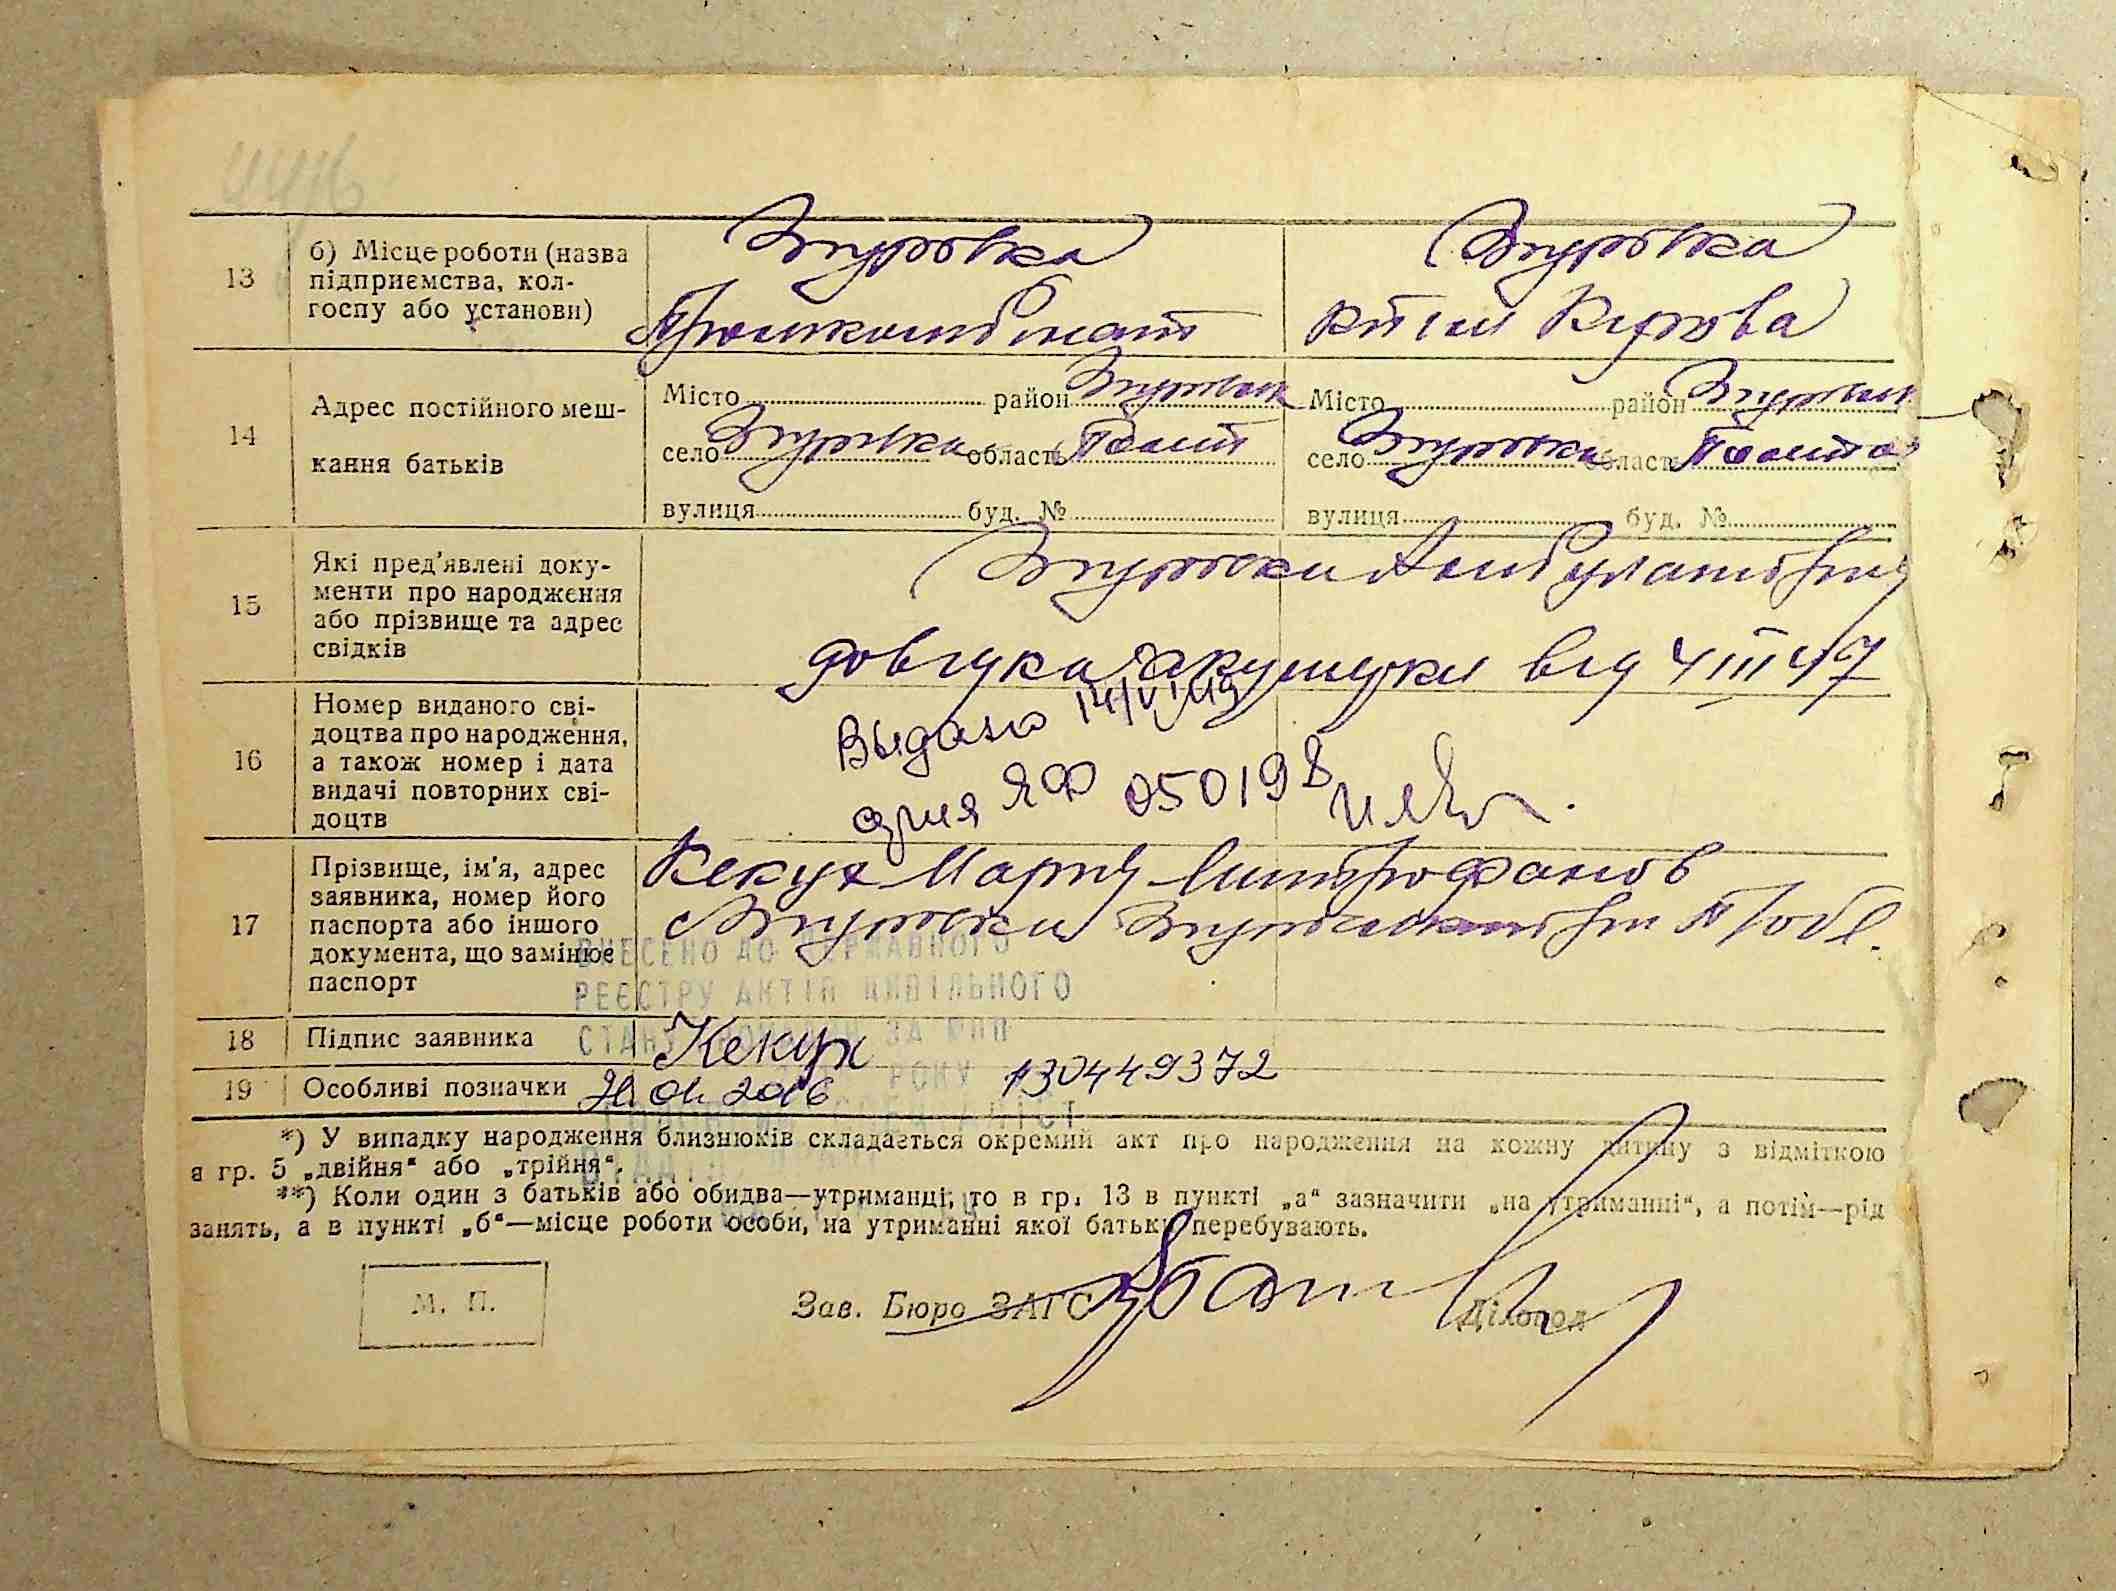 13
б) Місце роботи (назва
підприємства, кол-
госпу або установи)
Згуровка
Промкомбінат
Згуровка
к-п ім Кірова
14
Адрес постійного меш-
кання батьків
Місто район Згурівськ
село Згурівка область Полт
вулиця буд. №
Місто район Згурівськ
село Згурівка область Полтав
вулиця буд. №
15
Які пред'явлені доку-
менти про народження
або прізвище та адрес
свідків
довідка акушерки від 4 III 47
16
Номер виданого сві-
доцтва про народження,
а також номер і дата
видачі повторних сві-
доцтв
Выдано 14/VI 49
ЯФ 050198
17
Прізвище, ім'я, адрес
заявника, номер його
паспорта або іншого
документа, що замінює
паспорт
Кекух Марія Митрофанов
ВНЕСЕНО ДО ДЕРЖАВНОГО
РЕЄСТРУ АКТІВ ЦИВІЛЬНОГО
СТАНУ ГРОМАДЯН ЗА
РОКУ
18
Підпис заявника
Кекух
19
Особливі позначки
01. 2016
130449372
*) У випадку народження близнюків складається окремий акт про народження на кожну дитину з відміткою
в гр. 5 „двійня“ або „трійня“.
**) Коли один з батьків або обидва—утриманці, то в гр. 13 в пункті „а“ зазначити „на утриманні“, а потім—рід
занять, а в пункті „б“—місце роботи особи, на утриманні якої батьки перебувають.
М. П.
Зав. Бюро ЗАГС
Діловод